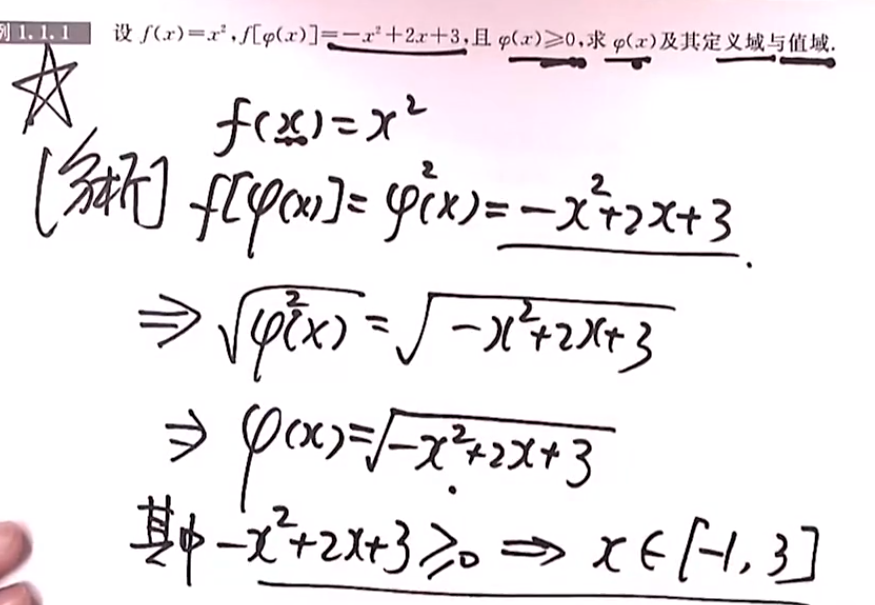 例 1.1.1 设 f(x)=x²,f[φ(x)]=-x²+2x+3,且 φ(x)≥0,求 φ(x)及其定义域与值域.
f(x)=x²
[分析] f[φ(x)]=φ²(x)=-x²+2x+3.
⇒√(φ²(x))=√(-x²+2x+3)
⇒ φ(x)=√(-x²+2x+3)
其中 -x²+2x+3≥0 ⇒ x∈[-1,3]